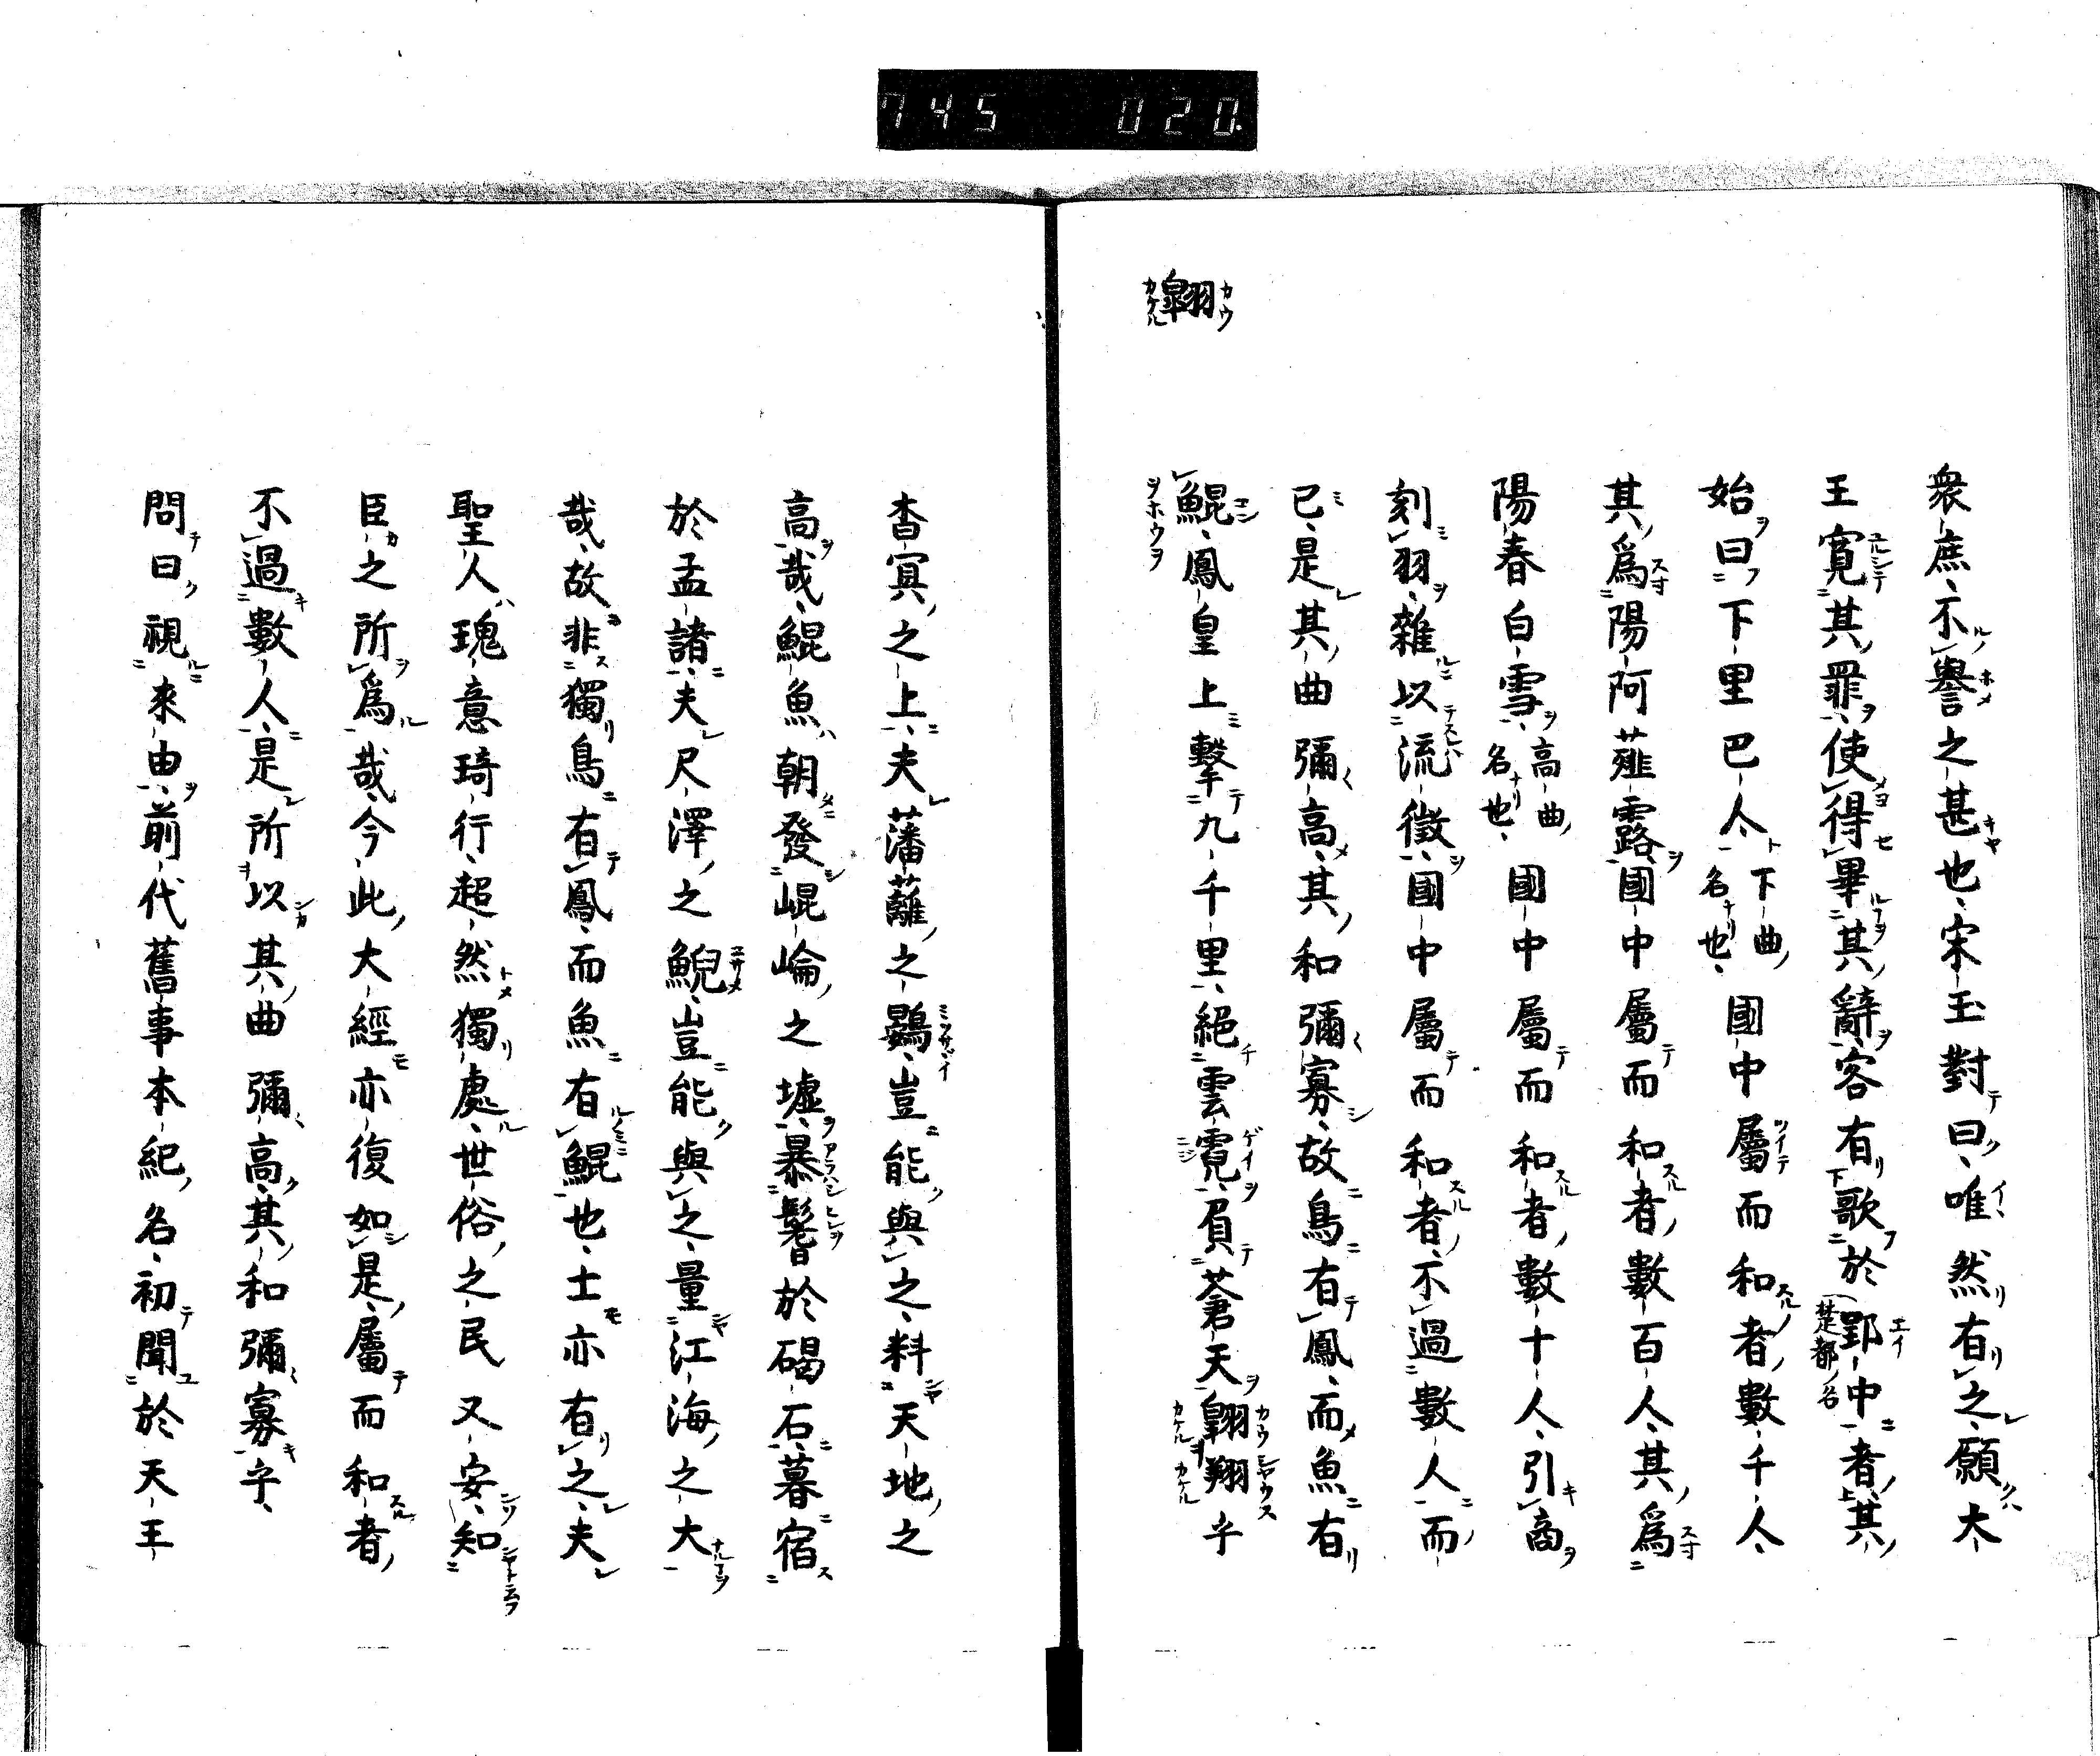 745 020.
翺
衆庶不譽之甚也宋玉對曰唯然有之願大
王寛其罪使得畢其辭客有歌於郢中者其
楚都ノ名
始曰下里巴人下曲名也國中屬而和者數千人
其爲陽阿薤露國中屬而和者數百人其爲
陽春白雪高曲名也國中屬而和者數十人引商
刻羽雜以流徴國中屬而和者不過數人而
已是其曲彌高其和彌寡故鳥有鳳而魚有
鯤鳳皇上擊九千里絕雲霓負蒼天翺翔乎
杳冥之上夫藩蘺之鷃豈能與之料天地之
高哉鯤魚朝發崐崘之墟暴鬐於碣石暮宿
於孟諸夫尺澤之鯢豈能與之量江海之大
哉故非獨鳥有鳳而魚有鯤也士亦有之夫
聖人瑰意琦行超然獨處世俗之民又安知
臣之所爲哉今此大經亦復如是屬而和者
不過數人是所以其曲彌高其和彌寡乎
問曰視來由前代舊事本紀名初聞於天王